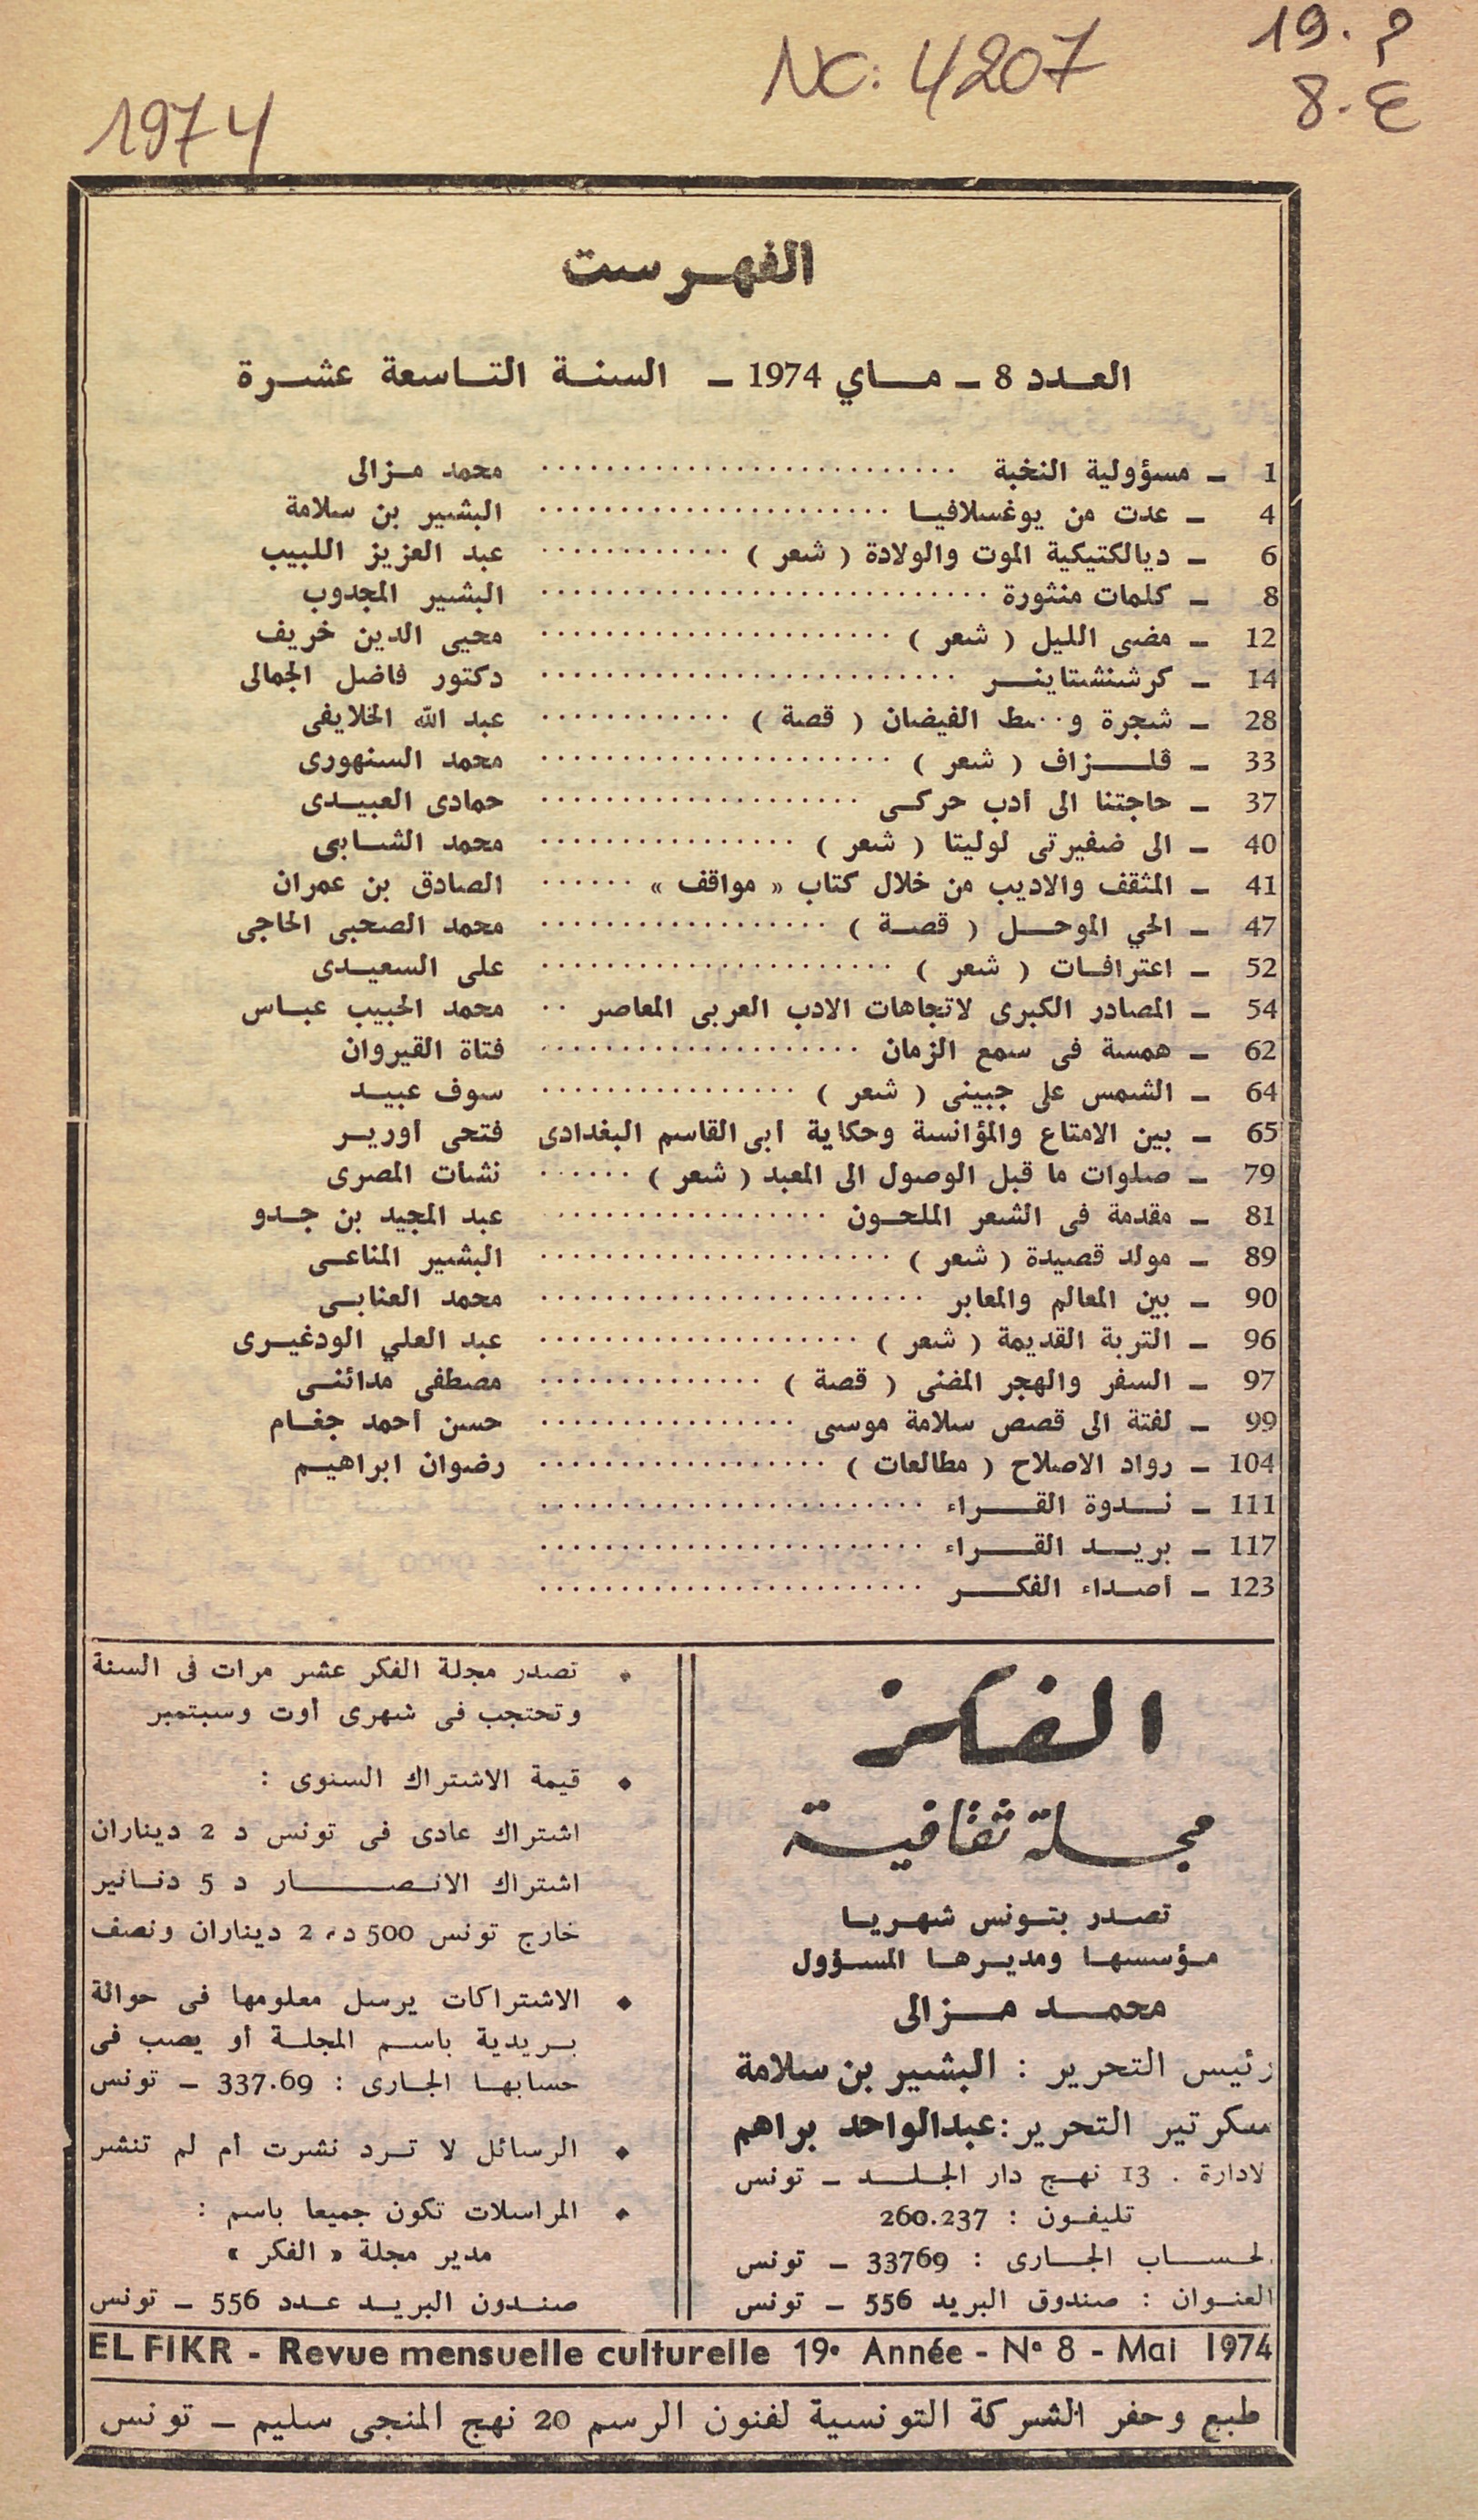 19. م
NC: 4207
8. ع
1974
الفهرست
العدد 8 ـ ماي 1974 ـ السنة التاسعة عشرة
1 ـ مسؤولية النخبة ........ محمد مزالى
4 ـ عدت من يوغسلافيا ........ البشير بن سلامة
6 ـ ديالكتيكية الموت والولادة ( شعر ) ........ عبد العزيز اللبيب
8 ـ كلمات منثورة ........ البشير المجدوب
12 ـ مضى الليل ( شعر ) ........ محيى الدين خريف
14 ـ كرشنشتاينر ........ دكتور فاضل الجمالى
28 ـ شجرة و..سط الفيضان ( قصة ) ........ عبد الله الخلايفى
33 ـ قلزاف ( شعر ) ........ محمد السنهورى
37 ـ حاجتنا الى أدب حركى ........ حمادى العبيدى
40 ـ الى ضفيرتى لوليتا ( شعر ) ........ محمد الشابى
41 ـ المثقف والاديب من خلال كتاب « مواقف » ...... الصادق بن عمران
47 ـ الحي الموحل ( قصة ) ........ محمد الصحبى الحاجى
52 ـ اعترافات ( شعر ) ........ على السعيدى
54 ـ المصادر الكبرى لاتجاهات الادب العربى المعاصر .. محمد الحبيب عباس
62 ـ همسة فى سمع الزمان ........ فتاة القيروان
64 ـ الشمس على جبينى ( شعر ) ........ سوف عبيد
65 ـ بين الامتاع والمؤانسة وحكاية ابى القاسم البغدادى فتحى اورير
79 ـ صلوات ما قبل الوصول الى المعبد ( شعر ) ...... نشأت المصرى
81 ـ مقدمة فى الشعر الملحون ........ عبد المجيد بن جدو
89 ـ مولد قصيدة ( شعر ) ........ البشير المناعى
90 ـ بين المعالم والمعابر ........ محمد العنابى
96 ـ التربة القديمة ( شعر ) ........ عبد العلي الودغيرى
97 ـ السفر والهجر المضنى ( قصة ) ........ مصطفى مدائنى
99 ـ لفتة الى قصص سلامة موسى ........ حسن أحمد جغام
104 ـ رواد الاصلاح ( مطالعات ) ........ رضوان ابراهيم
111 ـ ندوة القراء ........
117 ـ بريد القراء ........
123 ـ أصداء الفكر ........
الفكر
مجلة ثقافية
تصدر بتونس شهريا
مؤسسها ومديرها المسؤول
محمد مزالى
رئيس التحرير : البشير بن سلامة
سكرتير التحرير : عبدالواحد براهم
لادارة . 13 نهج دار الجلد ـ تونس
تليفون : 260.237
لحساب الجارى : 33769 ـ تونس
العنوان : صندوق البريد 556 ـ تونس
• تصدر مجلة الفكر عشر مرات فى السنة
وتحتجب فى شهرى أوت وسبتمبر
• قيمة الاشتراك السنوى :
اشتراك عادى فى تونس د 2 ديناران
اشتراك الانصار د 5 دنانير
خارج تونس 500 د، 2 ديناران ونصف
• الاشتراكات يرسل معلومها فى حوالة
بريدية باسم المجلة أو يصب فى
حسابها الجارى : 337.69 ـ تونس
• الرسائل لا ترد نشرت أم لم تنشر
• المراسلات تكون جميعا باسم :
مدير مجلة « الفكر »
صندون البريد عدد 556 ـ تونس
EL FIKR - Revue mensuelle culturelle 19e Année - N° 8 - Mai 1974
طبع وحفر الشركة التونسية لفنون الرسم 20 نهج المنجى سليم ـ تونس